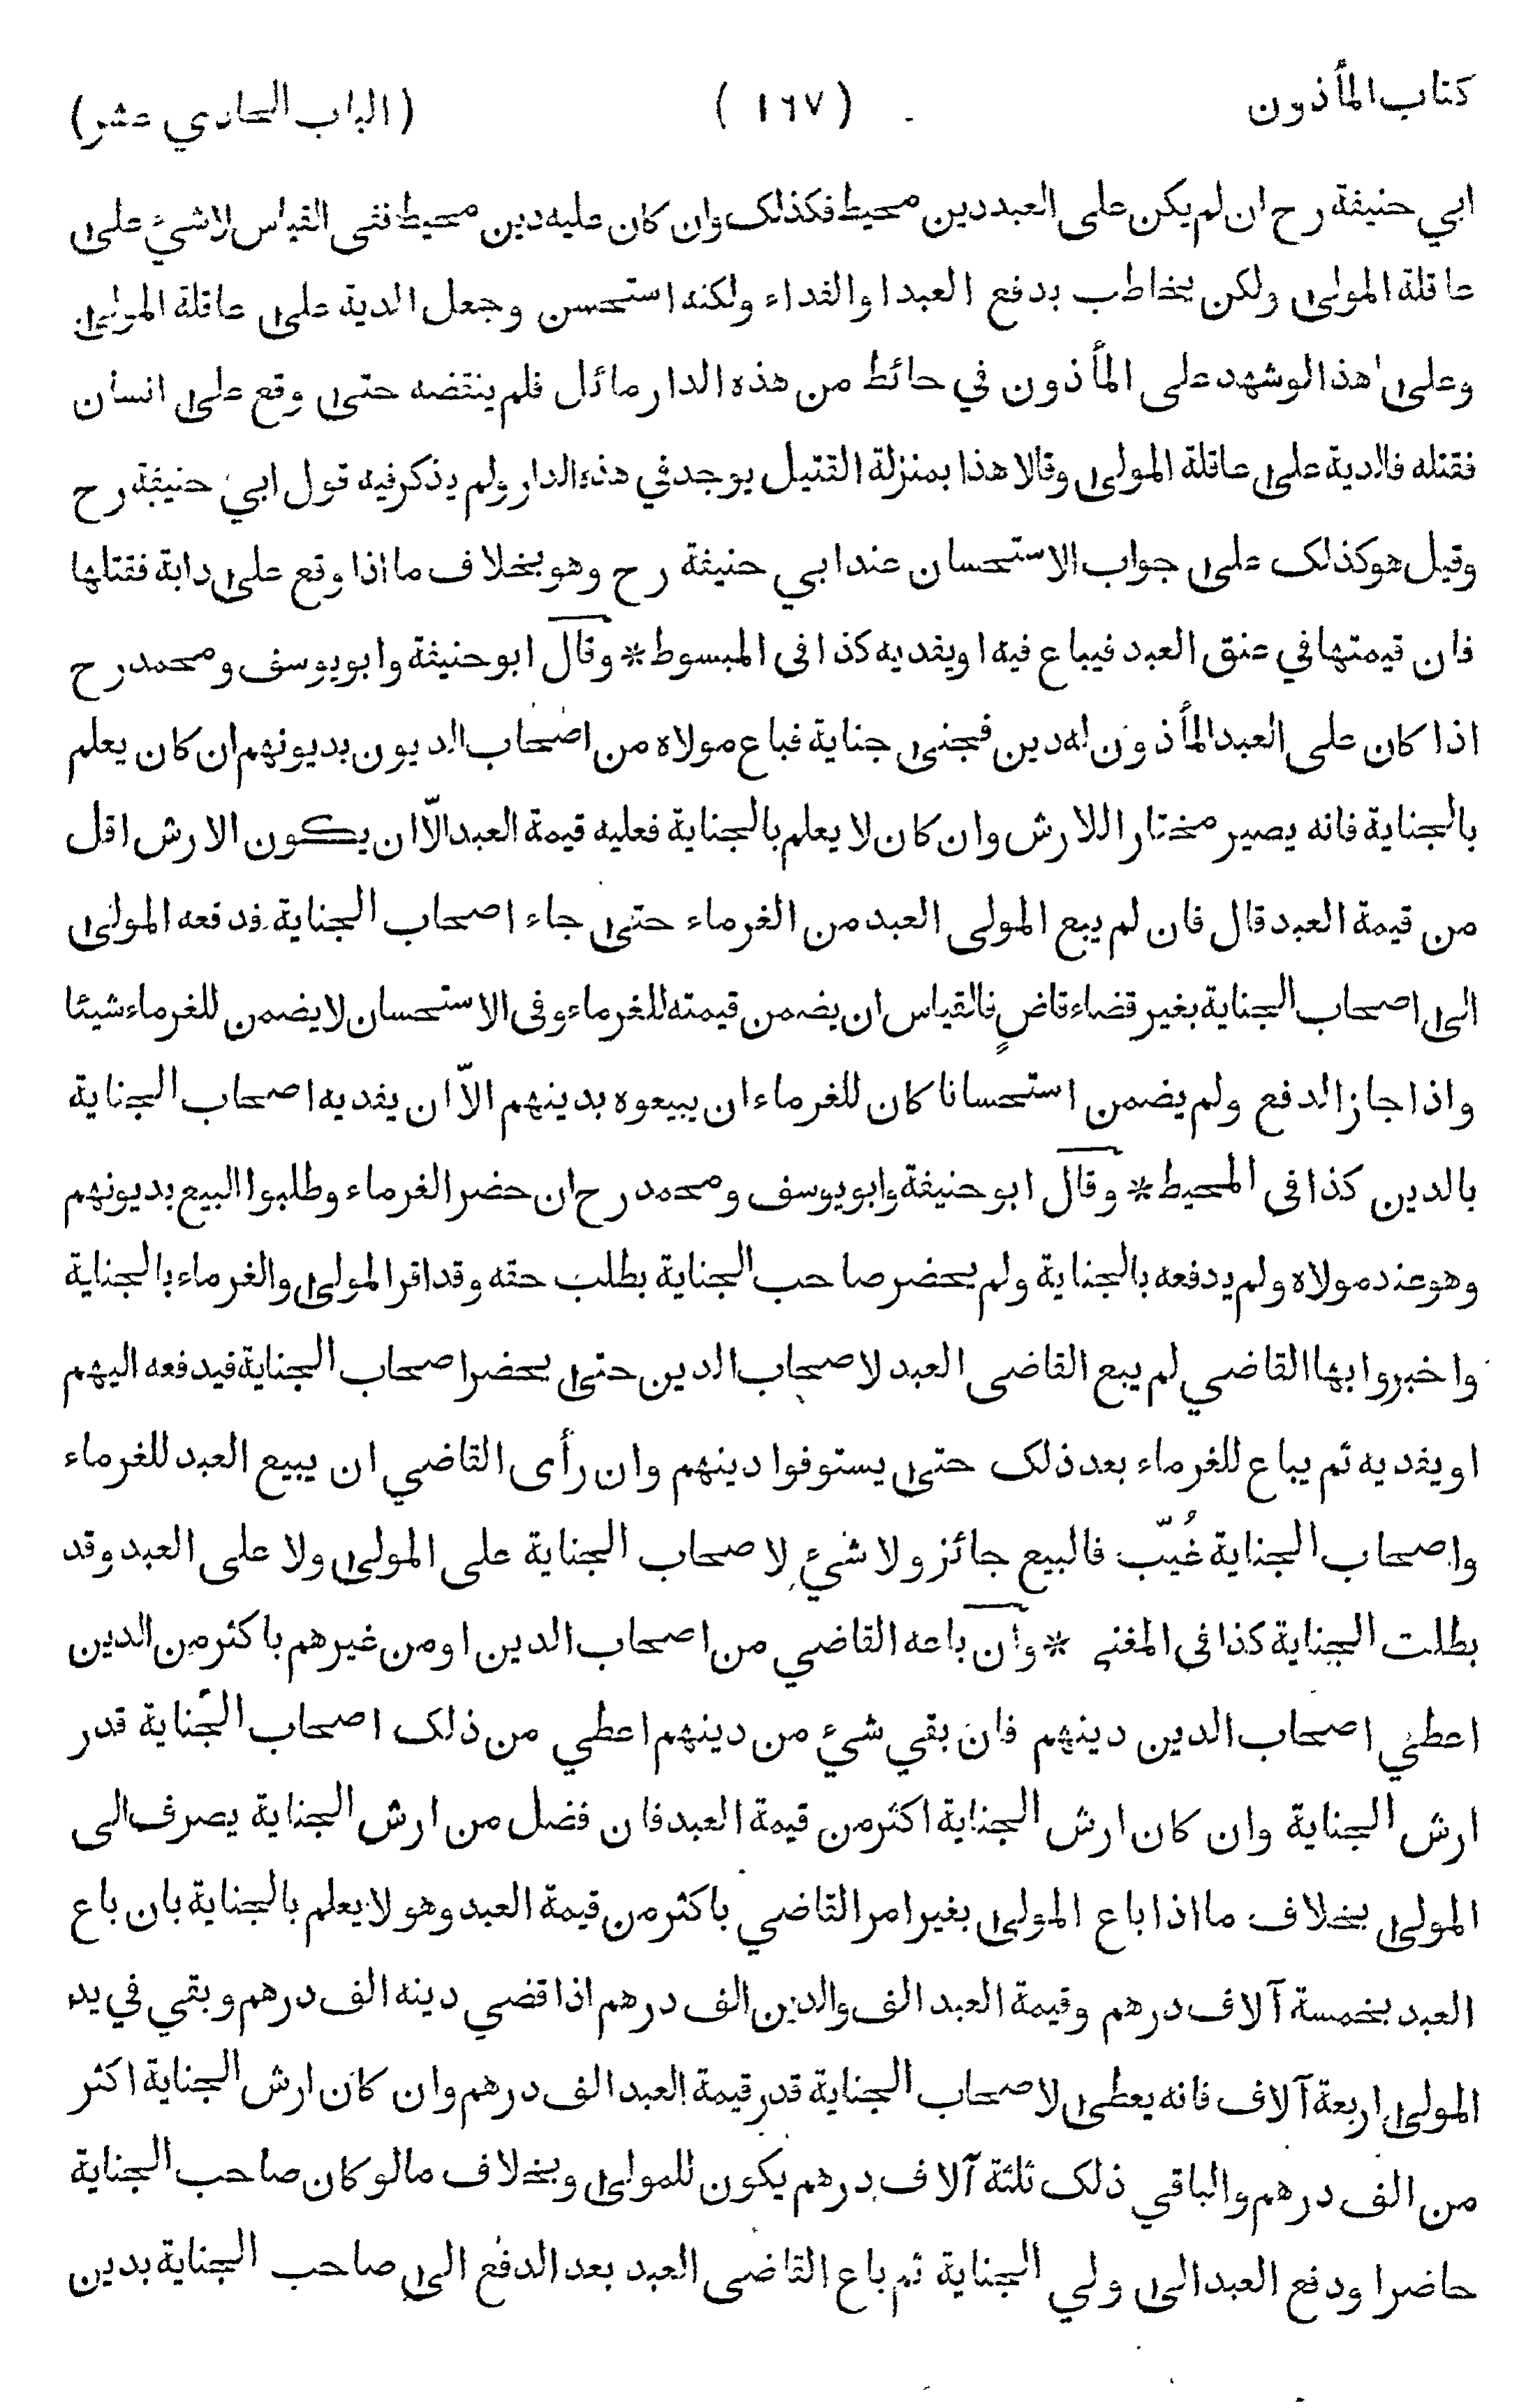 كتاب المأذون (١٦٧) (الباب الحادي عشر)
ابي حنيفة رح ان لم يكن على العبد دين محيط فكذلک وان كان عليه دين محيط ففى القياس لا شئ على
عاقلة المولى ولكن يخاطب بدفع العبد او الفداء ولكنه استحسن وجعل الدية على عاقلة المولى
وعلى هذا لو شهد على المأذون في حائط من هذه الدار مائل فلم ينقضه حتى وقع على انسان
فقتله فالدية على عاقلة المولى وقالا هذا بمنزلة القتيل يوجد في هذه الدار ولم يذكر فيه قول ابي حنيفة رح
وقيل هو كذلک على جواب الاستحسان عند ابي حنيفة رح وهو بخلاف ما اذا وقع على دابة فقتلها
فان قيمتها في عنق العبد فيباع فيه او يفديه كذا فى المبسوط * وقال ابو حنيفة وابو يوسف ومحمد رح
اذا كان على العبد المأذون له دين فجنى جناية فباع مولاه من اصحاب الديون بديونهم ان كان يعلم
بالجناية فانه يصير مختارا للارش وان كان لا يعلم بالجناية فعليه قيمة العبد الّا ان يكون الارش اقل
من قيمة العبد قال فان لم يبع المولى العبد من الغرماء حتى جاء اصحاب الجناية فدفعه المولى
الى اصحاب الجناية بغير قضاء قاضٍ فالقياس ان يضمن قيمته للغرماء وفى الاستحسان لا يضمن للغرماء شيئا
واذا جاز الدفع ولم يضمن استحسانا كان للغرماء ان يبيعوه بدينهم الّا ان يفديه اصحاب الجناية
بالدين كذا فى المحيط * وقال ابو حنيفة وابو يوسف ومحمد رح ان حضر الغرماء وطلبوا البيع بديونهم
وهو عند مولاه ولم يدفعه بالجناية ولم يحضر صاحب الجناية بطلب حقه وقد اقر المولى والغرماء بالجناية
واخبروا بها القاضي لم يبع القاضى العبد لاصحاب الدين حتى يحضر اصحاب الجناية فيدفعه اليهم
او يفديه ثم يباع للغرماء بعد ذلک حتى يستوفوا دينهم وان رأى القاضي ان يبيع العبد للغرماء
واصحاب الجناية غُيّب فالبيع جائز ولا شئ لاصحاب الجناية على المولى ولا على العبد وقد
بطلت الجناية كذا فى المغني * وان باعه القاضي من اصحاب الدين او من غيرهم باكثر من الدين
اعطي اصحاب الدين دينهم فان بقي شئ من دينهم اعطي من ذلک اصحاب الجناية قدر
ارش الجناية وان كان ارش الجناية اكثر من قيمة العبد فان فضل من ارش الجناية يصرف الى
المولى بخلاف ما اذا باع المولى بغير امر القاضي باكثر من قيمة العبد وهو لا يعلم بالجناية بان باع
العبد بخمسة آلاف درهم وقيمة العبد الف والدين الف درهم اذا قضي دينه الف درهم وبقي في يد
المولى اربعة آلاف فانه يعطى لاصحاب الجناية قدر قيمة العبد الف درهم وان كان ارش الجناية اكثر
من الف درهم والباقي ذلک ثلثة آلاف درهم يكون للمولى وبخلاف ما لو كان صاحب الجناية
حاضرا ودفع العبد الى ولي الجناية ثم باع القاضى العبد بعد الدفع الى صاحب الجناية بدين